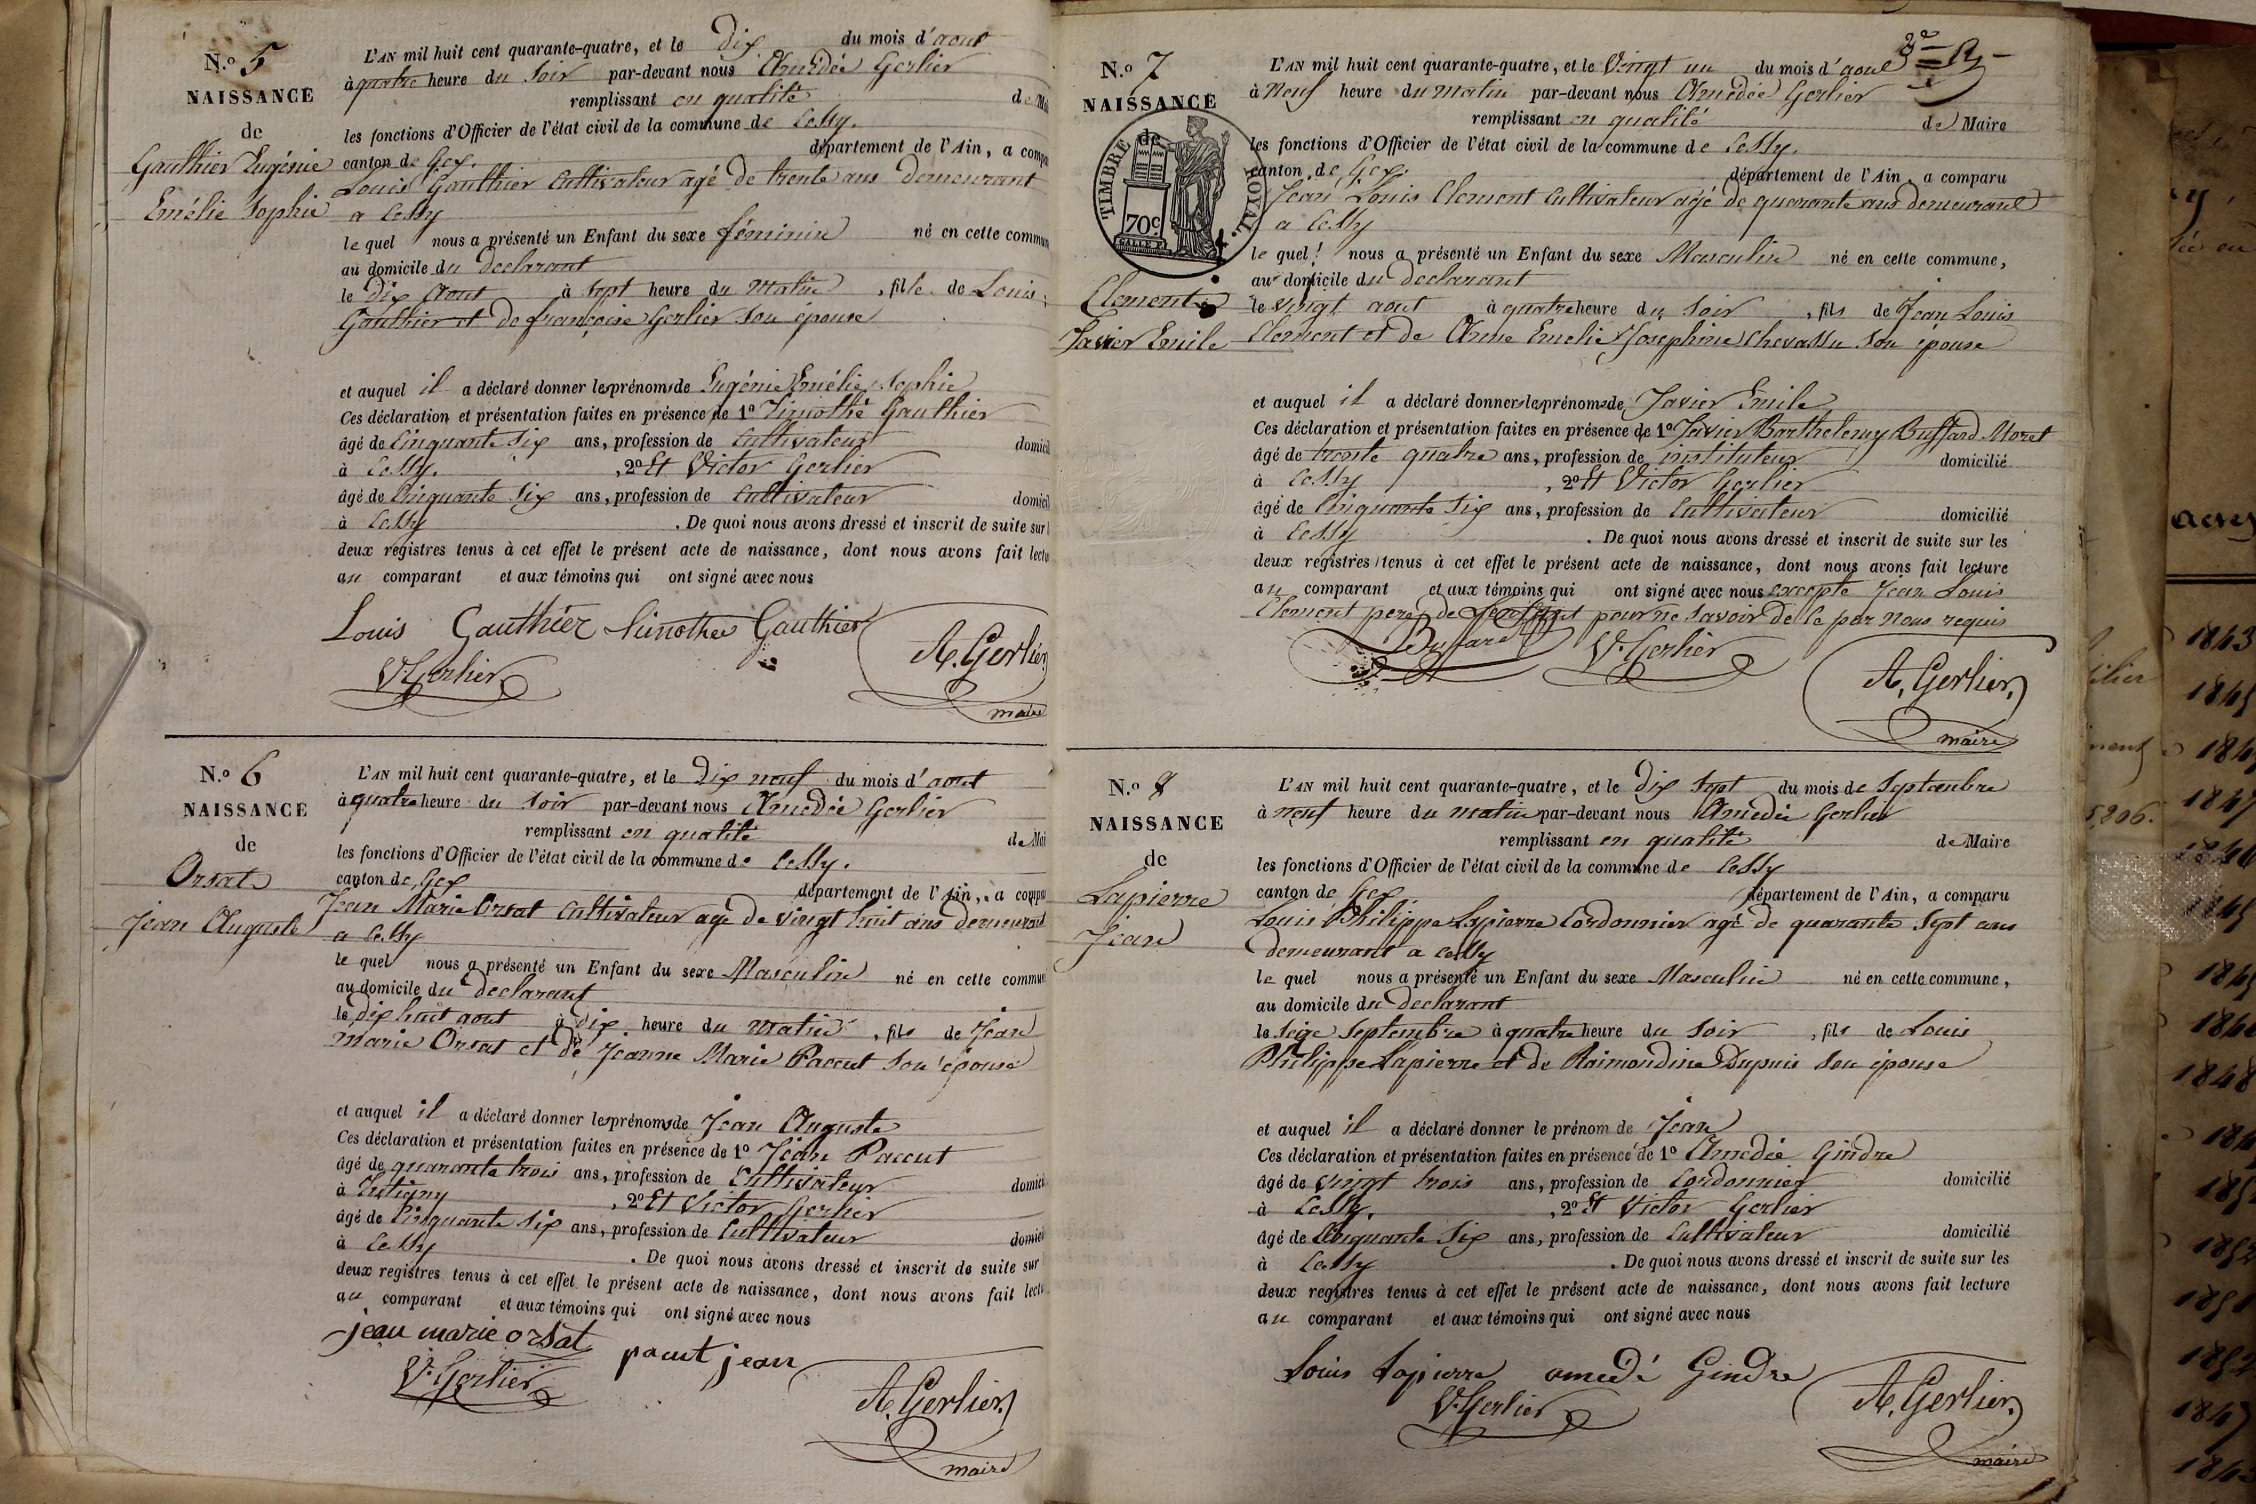 N.º 5
NAISSANCE
de
Gauthier Eugénie
Emélie Sophie
L'AN mil huit cent quarante-quatre, et le Dix du mois d'aout
à quatre heure du soir par-devant nous Amédée Gerlier
remplissant en qualité de Mai
les fonctions d'Officier de l'état civil de la commune de Cessy.
canton de Gex. département de l'Ain, a compa
Louis Gauthier Cultivateur agé de trente ans demeurant
a Cessy
le quel nous a présenté un Enfant du sexe féminin né en cette commun
au domicile du declarant
le dix Aout à sept heure du matin, fille de Louis
Gauthier et de françoise Gerlier son épouse
et auquel il a déclaré donner les prénoms de Eugénie Emélie Sophie
Ces déclaration et présentation faites en présence de 1º Timothé Gauthier
âgé de Cinquante six ans, profession de Cultivateur domicil
à Cessy. , 2º Et Victor Gerlier
âgé de Cinquante six ans, profession de Cultivateur domicil
à Cessy . De quoi nous avons dressé et inscrit de suite sur l
deux registres tenus à cet effet le présent acte de naissance, dont nous avons fait lectu
au comparant et aux témoins qui ont signé avec nous
Louis Gauthier timothee Gauthier
V. Gerlier A. Gerlier
maire
N.º 6
NAISSANCE
de
Orsat
Jean Auguste
L'AN mil huit cent quarante-quatre, et le Dix neuf du mois d'aout
à quatre heure du soir par-devant nous Amedée Gerlier
remplissant en qualité de Mai
les fonctions d'Officier de l'état civil de la commune de Cessy.
canton de Gex département de l'Ain, a compa
Jean Marie Orsat Cultivateur agé de vingt huit ans demeurant
a Cessy
le quel nous a présenté un Enfant du sexe Masculin né en cette commun
au domicile du declarant
le dix huit aout à dix heure du matin, fils de Jean
marie Orsat et de Jeanne Marie Paccut son épouse
et auquel il a déclaré donner les prénoms de Jean Auguste
Ces déclaration et présentation faites en présence de 1º Jean Paccut
âgé de quarante trois ans, profession de Cultivateur domici
à , 2º Et Victor Gerlier
âgé de Cinquante six ans, profession de Cultivateur domici
à Cessy . De quoi nous avons dressé et inscrit de suite sur
deux registres tenus à cet effet le présent acte de naissance, dont nous avons fait lectu
au comparant et aux témoins qui ont signé avec nous
jean marie orsat pacut jean
V. Gerlier A. Gerlier.
maire
N.º 7
NAISSANCE
de
TIMBRE ROYAL.
70c
Clement
Javier Emile
L'AN mil huit cent quarante-quatre, et le Vingt un du mois d'aout
à Neuf heure du matin par-devant nous Amédée Gerlier
remplissant en qualité de Maire
les fonctions d'Officier de l'état civil de la commune de Cessy.
canton de Gex. département de l'Ain, a comparu
Jean Louis Clement Cultivateur agé de quarante ans demeurant
a Cessy
le quel nous a présenté un Enfant du sexe Masculin né en cette commune,
au domicile du declarant
le vingt aout à quatre heure du soir, fils de Jean Louis
Clement et de Anne Emelie Josephine Chevassu son épouse
et auquel il a déclaré donner les prénoms de Javier Emile
Ces déclaration et présentation faites en présence de 1º Javier Barthelemy Buffard Moret
âgé de trente quatre ans, profession de instituteur domicilié
à Cessy , 2º Et Victor Gerlier
âgé de Cinquante six ans, profession de Cultivateur domicilié
à Cessy . De quoi nous avons dressé et inscrit de suite sur les
deux registres tenus à cet effet le présent acte de naissance, dont nous avons fait lecture
au comparant et aux témoins qui ont signé avec nous excepte Jean Louis
Clement pere de Lenfant pour ne savoir de ce par nous requis
Buffard V. Gerlier
A. Gerlier.
maire
N.º 8
NAISSANCE
de
Lapierre
Jean
L'AN mil huit cent quarante-quatre, et le Dix sept du mois de Septembre
à neuf heure du matin par-devant nous Amedée Gerlier
remplissant en qualité de Maire
les fonctions d'Officier de l'état civil de la commune de Cessy
canton de Gex département de l'Ain, a comparu
Louis Philippe Lapierre Cordonnier agé de quarante sept ans
demeurant a Cessy
le quel nous a présenté un Enfant du sexe Masculin né en cette commune,
au domicile du declarant
le seize Septembre à quatre heure du soir, fils de Louis
Philippe Lapierre et de Raimondine Dupuis son épouse
et auquel il a déclaré donner le prénom de Jean
Ces déclaration et présentation faites en présence de 1º Amedée Gindre
âgé de vingt trois ans, profession de Cordonnier domicilié
à Cessy. , 2º Et Victor Gerlier
âgé de Cinquante six ans, profession de Cultivateur domicilié
à Cessy . De quoi nous avons dressé et inscrit de suite sur les
deux registres tenus à cet effet le présent acte de naissance, dont nous avons fait lecture
au comparant et aux témoins qui ont signé avec nous
Louis Lapierre amedé Gindre
V. Gerlier A. Gerlier.
maire
1843
1845
1847
5,206.
1848